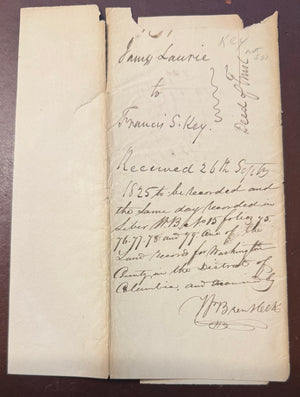 Key
James Laurie
to
Francis S. Key.
Deed of Trust
Received 26th Septr
1825 to be recorded and
the same day recorded in
Liber W.B. No 15 folios 75,
76, 77, 78 and 79 one of the
Land records for Washington
County in the District of
Columbia, and examined by
Wm Brent Clk